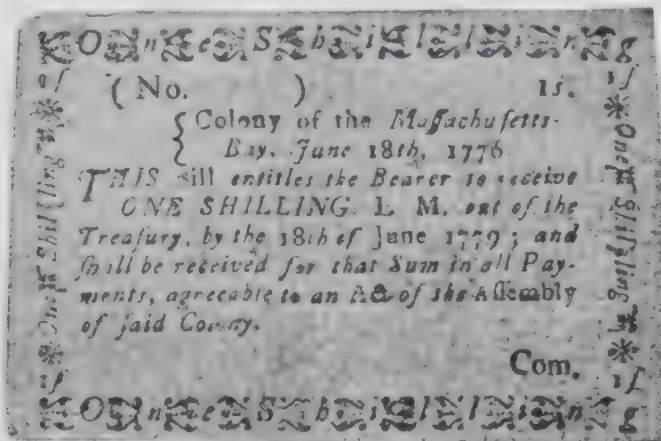 One Shilling
(No. ) 1s.
Colony of the Maſſachuſetts-
Bay, June 18th, 1776.
THIS Bill entitles the Bearer to receive
ONE SHILLING L. M. out of the
Treaſury, by the 18th of June 1779; and
ſhall be received for that Sum in all Pay-
ments, agreeable to an Act of the Aſſembly
of ſaid Colony.
Com.
One Shilling
1ſ * One Shilling * 1ſ
1ſ * One Shilling * 1ſ